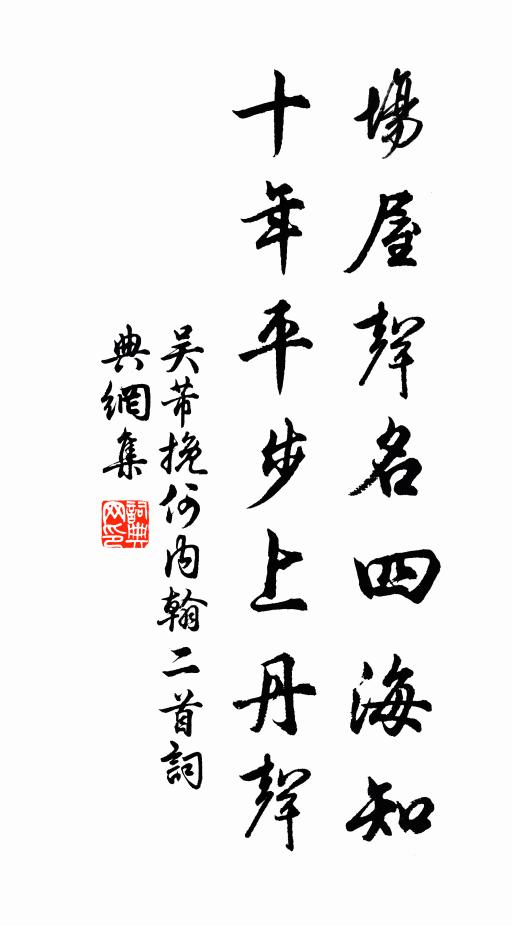 場屋聲名四海知
十年平步上丹聲
吴芾挽何内翰二首詞
典網集
詞典
网印